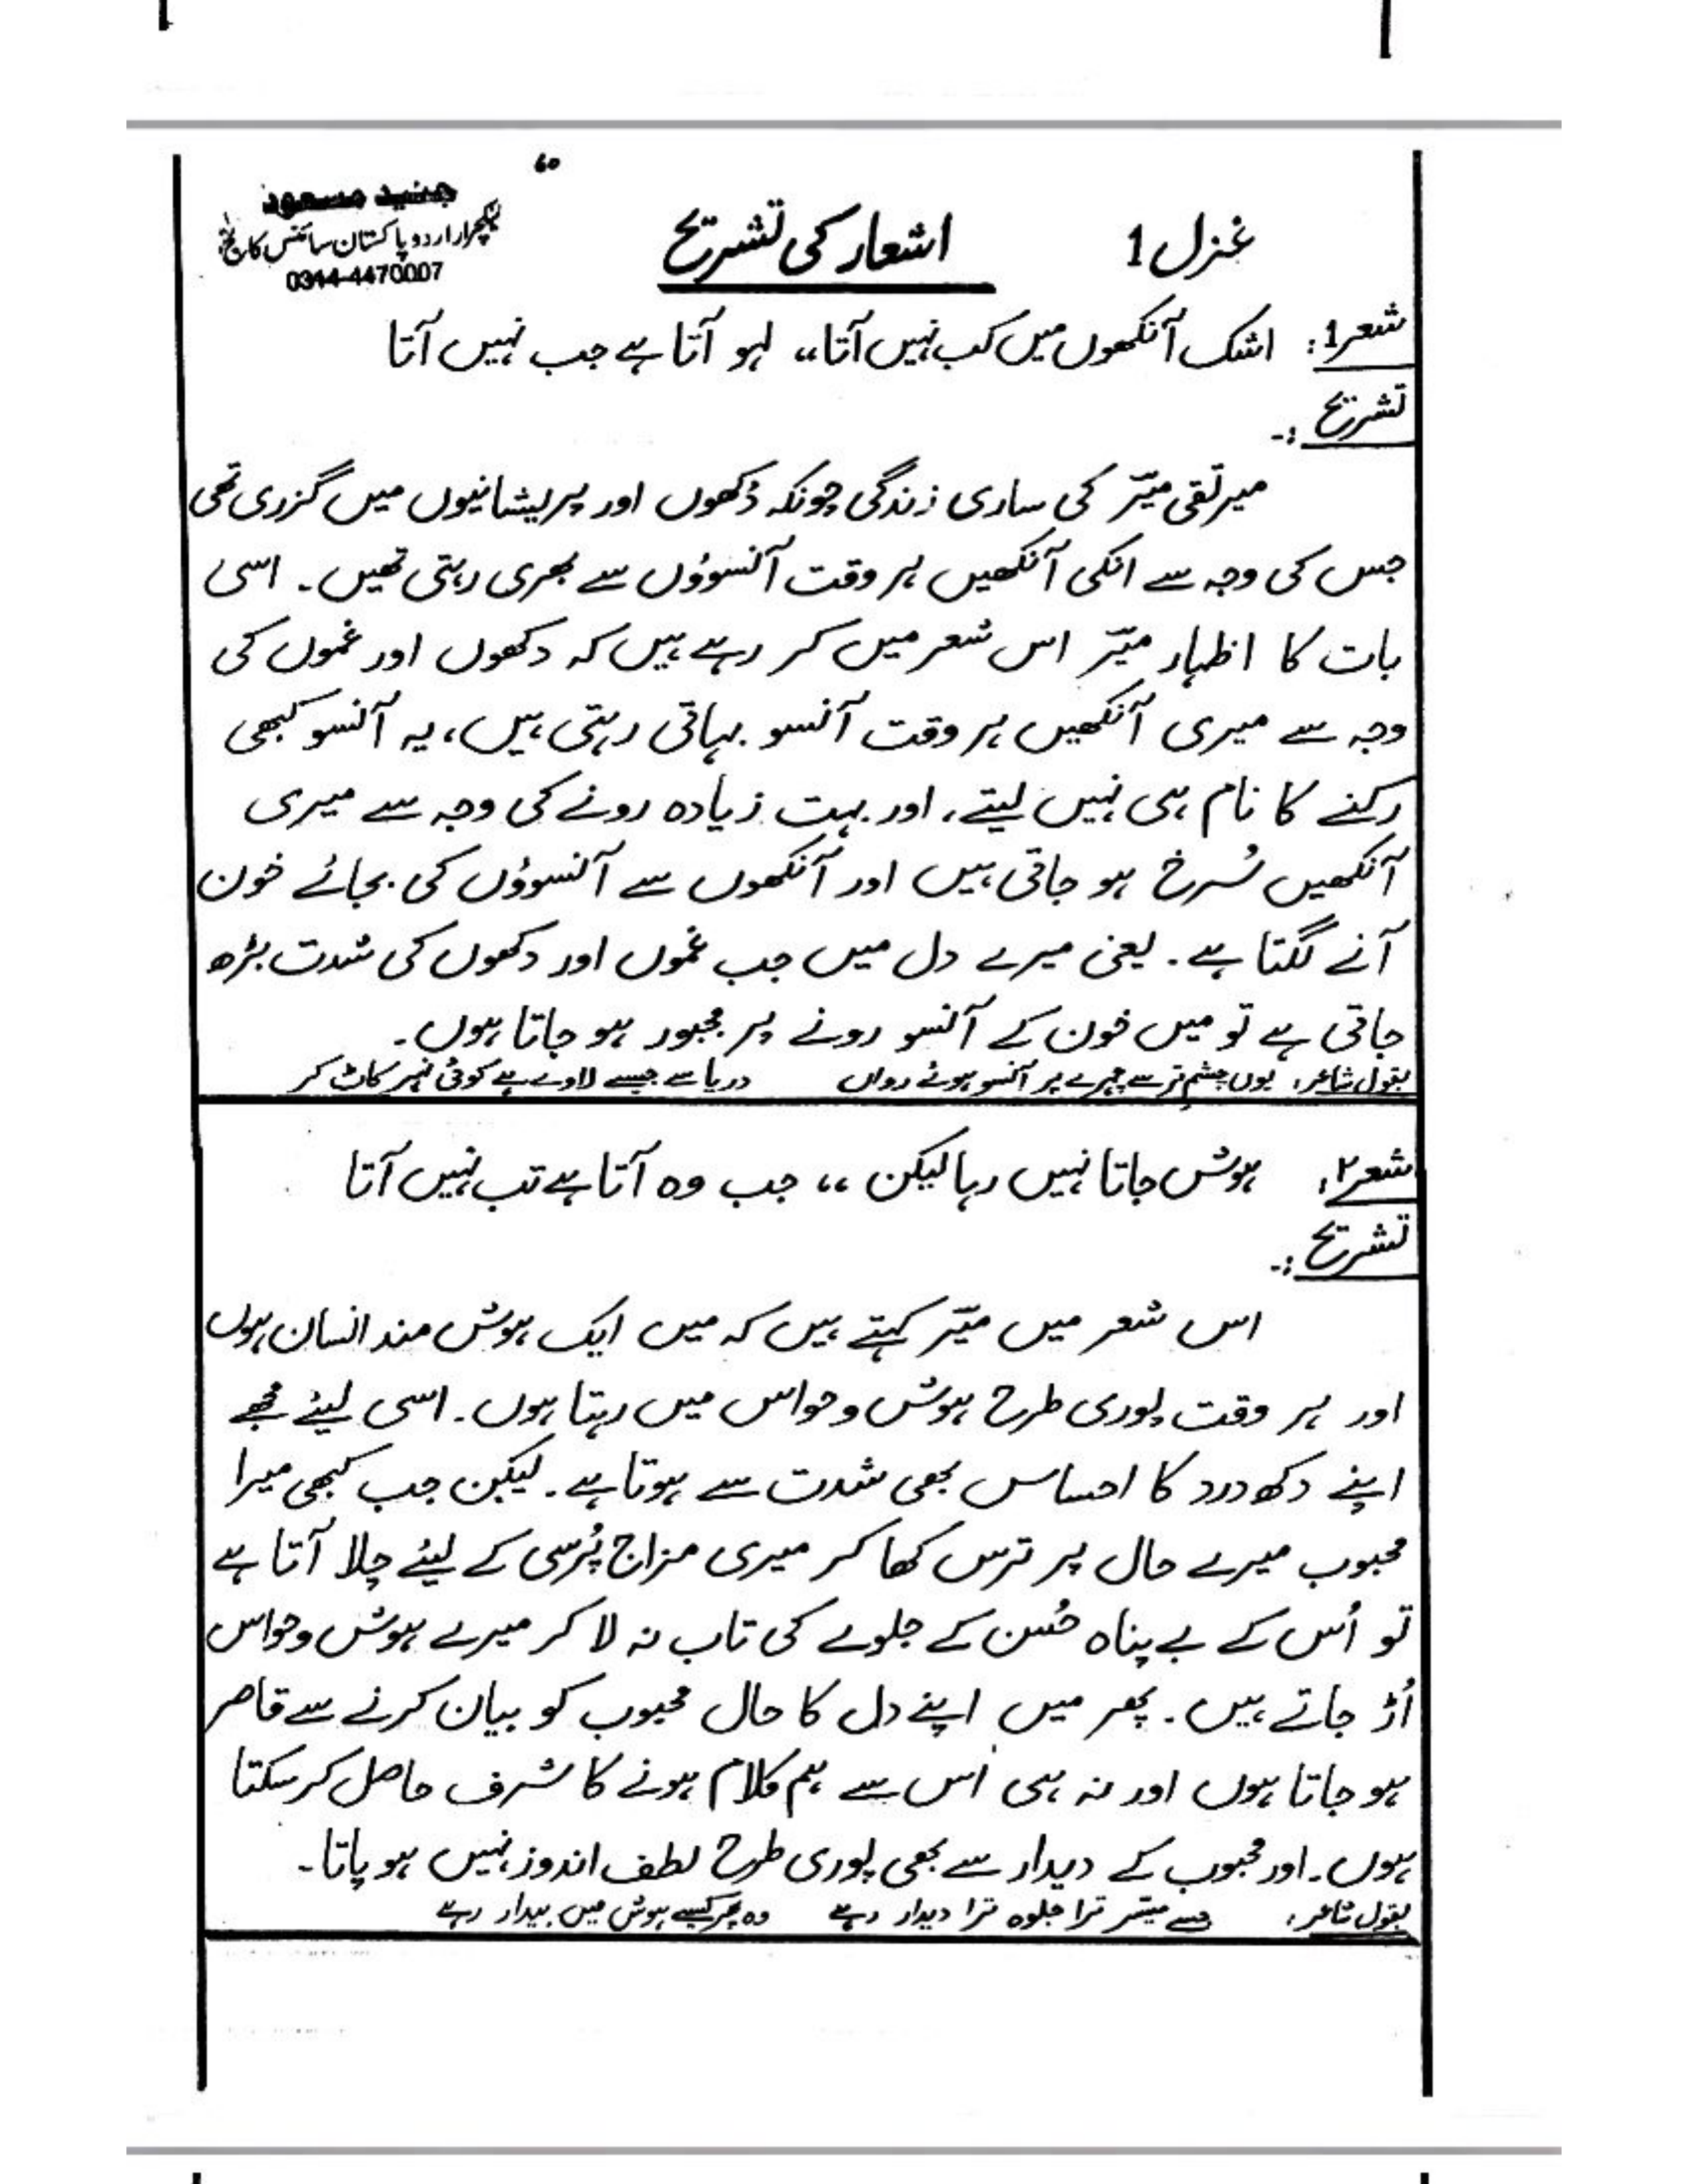 ۶۵
جنید مسعود
لیکچرار اردو پاکستان سائنس کالج
0344-4470007
غزل 1 اشعار کی تشریح
شعر1: اشک آنکھوں میں کب نہیں آتا،، لہو آتا ہے جب نہیں آتا
تشریح :-
میر تقی میّر کی ساری زندگی چونکہ دُکھوں اور پریشانیوں میں گزری تھی
جس کی وجہ سے انکی آنکھیں ہر وقت آنسوؤں سے بھری رہتی تھیں۔ اسی
بات کا اظہار میّر اس شعر میں کر رہے ہیں کہ دکھوں اور غموں کی
وجہ سے میری آنکھیں ہر وقت آنسو بہاتی رہتی ہیں، یہ آنسو کبھی
رکنے کا نام ہی نہیں لیتے، اور بہت زیادہ رونے کی وجہ سے میری
آنکھیں سُرخ ہو جاتی ہیں اور آنکھوں سے آنسوؤں کی بجائے خون
آنے لگتا ہے۔ یعنی میرے دل میں جب غموں اور دکھوں کی شدت بڑھ
جاتی ہے تو میں خون کے آنسو رونے پر مجبور ہو جاتا ہوں۔
بقول شاعر: یوں چشمِ تر سے چہرے پر آنسو ہوئے رواں دریا سے جیسے لاوے ہے کوئی نہر کاٹ کر
شعر۲: ہوش جاتا نہیں رہا لیکن ،، جب وہ آتا ہے تب نہیں آتا
تشریح :-
اس شعر میں میّر کہتے ہیں کہ میں ایک ہوش مند انسان ہوں
اور ہر وقت پوری طرح ہوش و حواس میں رہتا ہوں۔ اسی لیئے مجھے
اپنے دکھ درد کا احساس بھی شدت سے ہوتا ہے۔ لیکن جب کبھی میرا
محبوب میرے حال پر ترس کھا کر میری مزاج پُرسی کے لیئے چلا آتا ہے
تو اُس کے بے پناہ حُسن کے جلوے کی تاب نہ لا کر میرے ہوش و حواس
اُڑ جاتے ہیں۔ پھر میں اپنے دل کا حال محبوب کو بیان کرنے سے قاصر
ہو جاتا ہوں اور نہ ہی اُس سے ہم کلام ہونے کا شرف حاصل کر سکتا
ہوں۔ اور محبوب کے دیدار سے بھی پوری طرح لطف اندوز نہیں ہو پاتا۔
بقول شاعر: جسے میسّر ترا جلوہ ترا دیدار رہے وہ پھر کیسے ہوش میں بیدار رہے